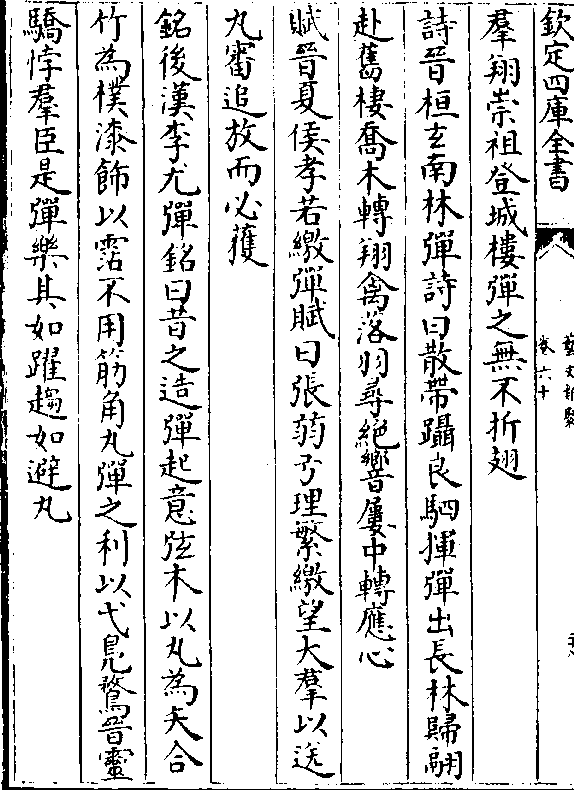 欽定四庫全書
藝文類聚
卷六十
羣翔崇祖登城樓彈之無不折翅
詩晉桓玄南林彈詩曰散帶躡良駟揮彈出長林歸翮
赴舊棲喬木轉翔禽落羽尋絕響屢中轉應心
賦晉夏侯孝若繳彈賦曰張弱弓理繁繳望大羣以送
丸審追放而必獲
銘後漢李尤彈銘曰昔之造彈起意弦木以丸為矢合
竹為樸漆飾以霑不用筋角丸彈之利以弋鳧鶩晉靈
驕悖羣臣是彈樂其如躍趨如避丸